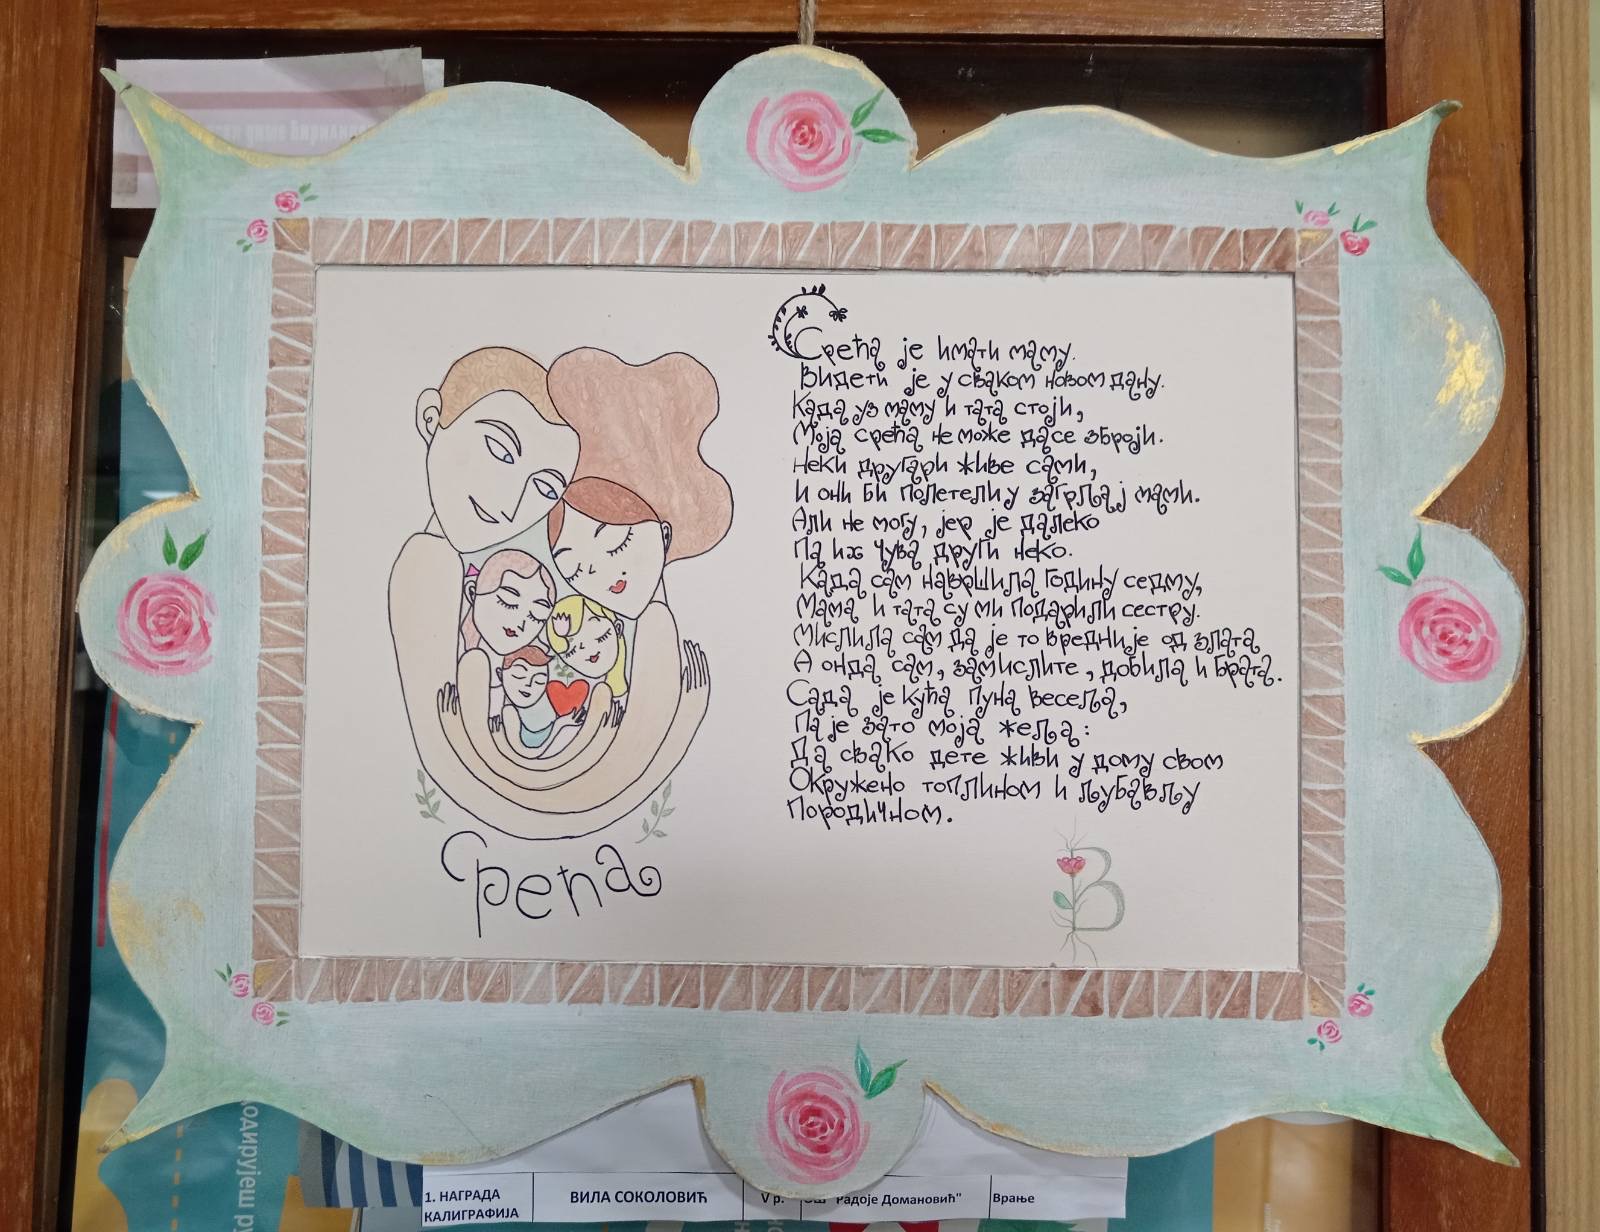 Срећа је имати маму.
Видети је у сваком новом дану.
Када уз маму и тата стоји,
Моја срећа не може да се зброји.
Неки другари живе сами,
И они би полетели у загрљај мами.
Али не могу, јер је далеко
Па их чува други неко.
Када сам навршила годину седму,
Мама и тата су ми подарили сестру.
Мислила сам да је то вредније од злата
А онда сам, замислите, добила и брата.
Сада је кућа пуна весеља,
Па је зато моја жеља:
Да свако дете живи у дому свом
Окружено топлином и љубављу
Породичном.
Срећа
В
1. НАГРАДА
КАЛИГРАФИЈА
ВИЛА СОКОЛОВИЋ
V р.
ОШ "Радоје Домановић"
Врање